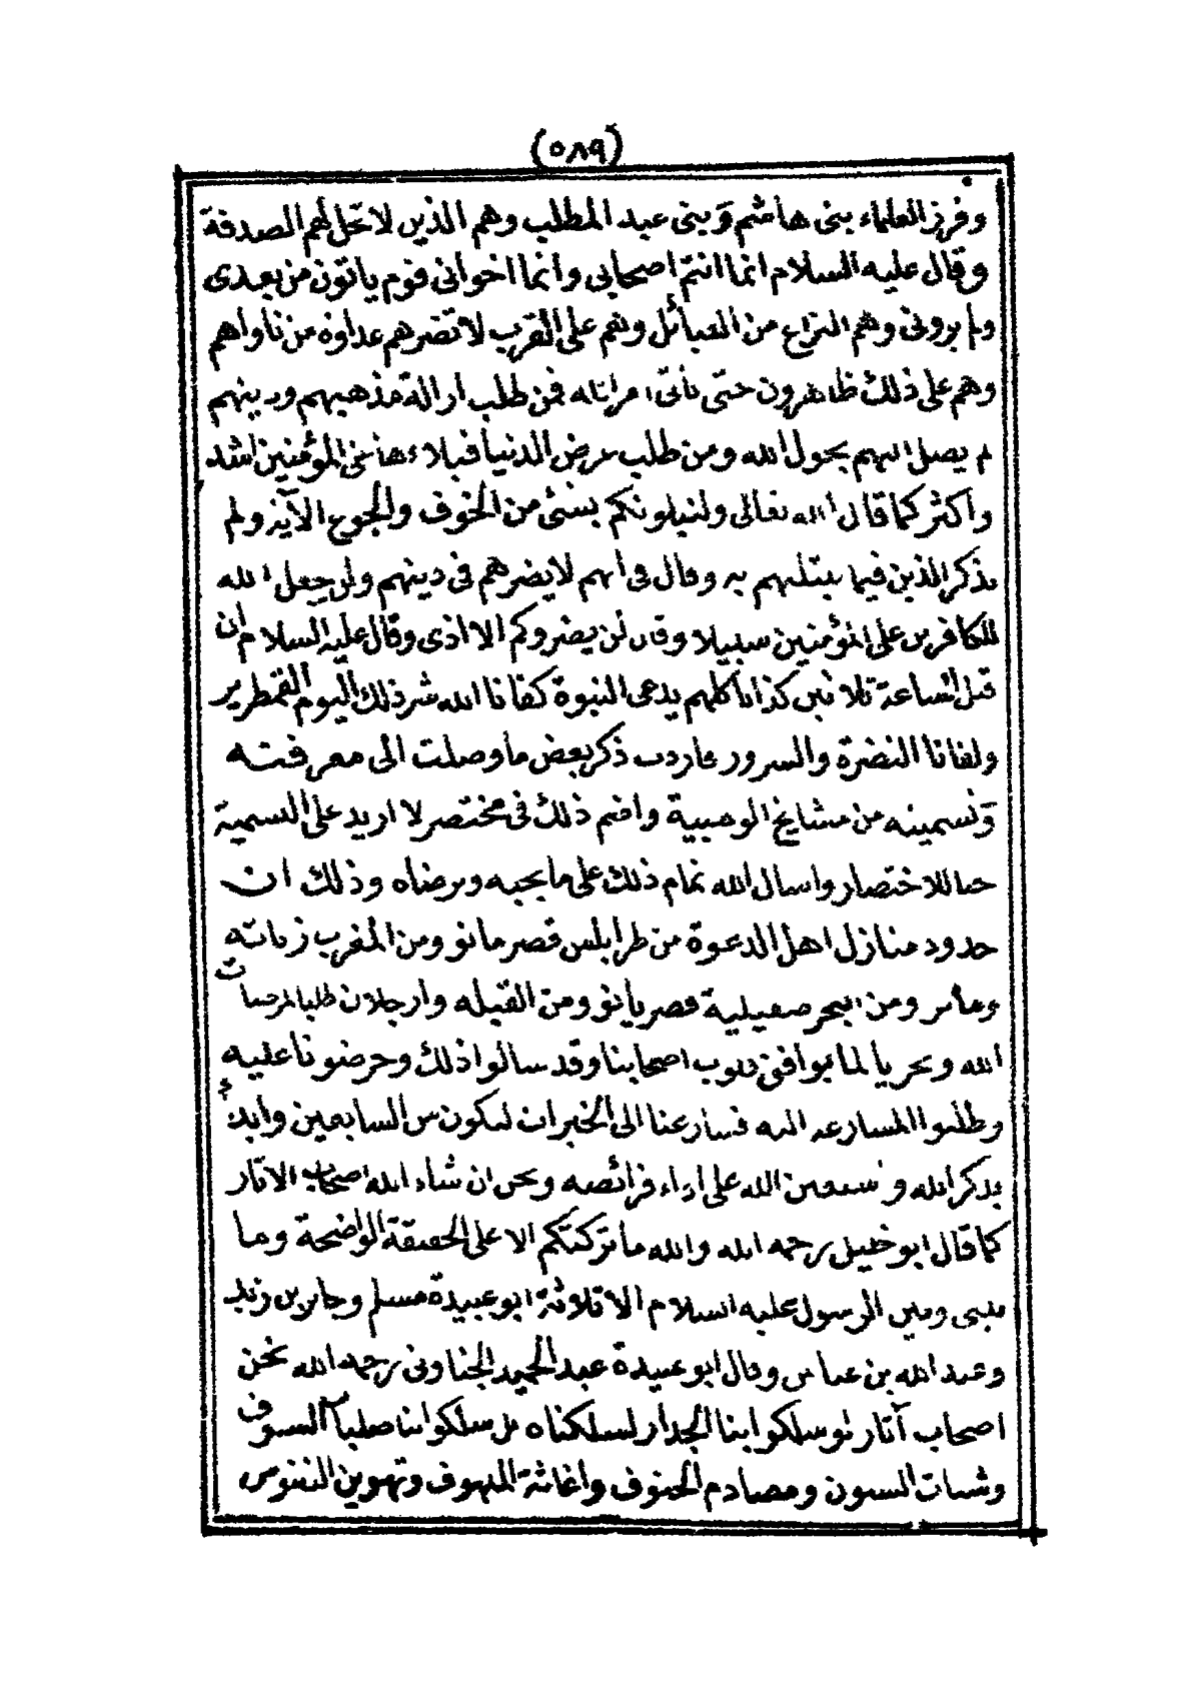 (٥٨٩)
وفرز العلماء بنى هاشم وبنى عبد المطلب وهم الذين لا تحل لهم الصدقة
وقال عليه السلام انما انتم اصحابى وانما اخوانى قوم ياتون من بعدى
ولم يرونى وهم النزاع من القبائل وهم على القرب لا تضرهم عداوة من ناواهم
وهم على ذلك ظاهرون حتى ياتى امر الله فمن طلب ازالة مذهبهم ودينهم
لم يصل اليهم بحول الله ومن طلب عرض الدنيا فبلاء هانى المؤمنين اشد
واكثر كما قال الله تعالى ولنبلونكم بشئ من الخوف والجوع الآية ولم
يذكر الذين فيما يبتليهم به وقال فى انهم لا يضرهم فى دينهم ولن يجعل الله
للكافرين على المؤمنين سبيلا وقال لن يضروكم الا اذى وقال عليه السلام ان
قبل الساعة ثلاثين كذابا كلهم يدعى النبوة كفانا الله شر ذلك اليوم القمطرير
ولقانا النضرة والسرور فاردت ذكر بعض ما وصلت الى معرفته
وتسميته من مشايخ الوهبية واضم ذلك فى مختصر لا ازيد على التسمية
حبا للاختصار واسال الله تمام ذلك على ما يحبه ويرضاه وذلك ان
حدود منازل اهل الدعوة من طرابلس قصر مانو ومن المغرب زناته
ومن البحر صقيلية قصر يانو ومن القبله وارجلان طلبا لمرضات
الله وتحريا لما يوافق قلوب اصحابنا وقد سالوا ذلك وحرضونا عليه
وطلبوا المسارعه اليه فسارعنا الى الخيرات لنكون من السابقين وابدء
بذكر الله ونستعين الله على اداء فرائضه ونحن ان شاء الله اصحاب الاثار
كما قال ابو خليل رحمه الله والله ما تركتكم الا على الحقيقة الواضحة وما
بينى وبين الرسول عليه السلام الا ثلاثة ابو عبيدة مسلم وجابر بن زيد
وعبد الله بن عباس وقال ابو عبيدة عبد الحميد الجناونى رحمه الله نحن
اصحاب آثار لو سلكوا بنا الجدار لسلكناه بل سلكوا بنا صلبا السيوف
وشبات السنون ومصادم الحتوف واغاثة الملهوف وتهوين النفوس